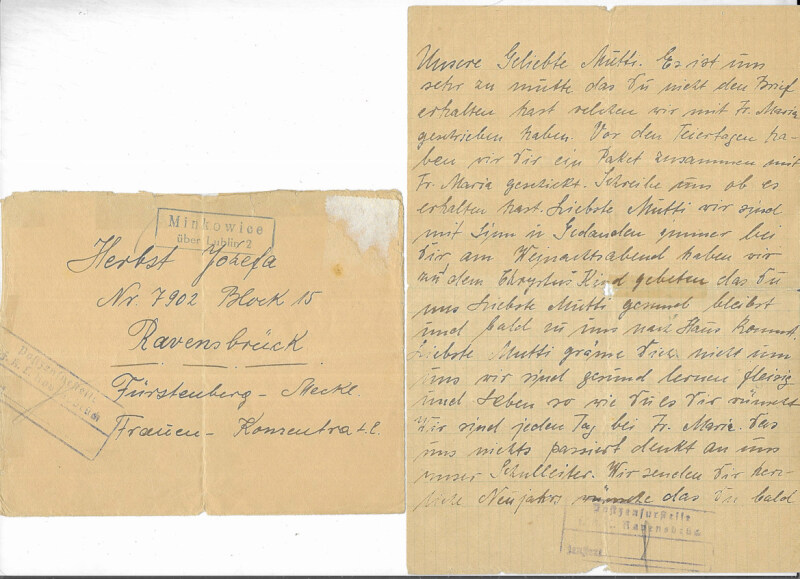 Minkowice
über Lublin 2
Herbst Jozefa
Nr. 7902 Block 15
Ravensbrück
Fürstenberg - Meckl.
Frauen - Konzentra t. L.
Unsere Geliebte Mutti. Es ist uns
sehr zu mutte das Du nicht den Brief
erhalten hast velchen wir mit Fr. Maria
geschrieben haben. Vor den Feiertagen ha-
ben wir Dir ein Paket zusammen mit
Fr. Maria geschickt. Schreibe uns ob es
erhalten hast. Liebste Mutti wir sind
mit Sinn u Gedanden ymmer bei
Dir am Weinachtsabend haben wir
zu dem Chrystus Kind gebeten das Du
uns Liebste Mutti gesund bleibst
und bald zu uns nach Haus kommst.
Liebste Mutti gräme Dich nicht um
uns wir sind gesund lernen fleizig
und Leben so wie Du es Dir wünscht
Wir sind jeden Tag bei Fr. Maria. Das
uns nichts passiert denkt an uns
unser Schulleiter. Wir senden Dir herz-
liche Neujahrs wünsche das Du bald
Postzensurstelle
Ravensbrück